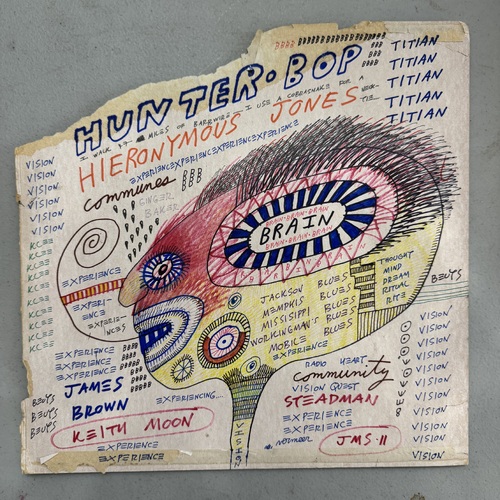 HUNTER · BOP
TITIAN
TITIAN
TITIAN
TITIAN
TITIAN
I WALK 47 MILES OF BARBWIRE - I USE A COBRASNAKE FOR A NECK-TIE
HIERONYMOUS JONES
EXPERIENCEXPERIENCEXPERIENCEXPERIENCE
VISION
VISION
VISION
VISION
VISION
VISION
communes
GINGER
BAKER
KLEE
KLEE
KLEE
KLEE
KLEE
KLEE
KLEE
KLEE
KLEE
BRAIN·BRAIN·BRAIN
BRAIN
BRAIN·BRAIN·BRAIN
EXPERIENCE
EXPERI-
ENCE
EXPERI-
ENCES
THOUGHT
MIND
DREAM
RITUAL
RITE
BEUYS
JACKSON BLUES
MEMPHIS BLUES
MISSISSIPPI BLUES
WORKINGMAN'S BLUES
MOBILE BLUES
EXPERIENCE
VISION
VISION
VISION
VISION
VISION
VISION
VISION
VISION
VISION
VISION
VISION
VISION
EXPERIENCE
EXPERIENCE
EXPERIENCE
JAMES
BROWN
BEUYS
BEUYS
BEUYS
KEITH MOON
EXPERIENCE
EXPERIENCE
EXPERIENCING...
VISION
RADIO HEART
Community
VISION QUEST
STEADMAN
EXPERIENCE
EXPERIENCE
JMS·11